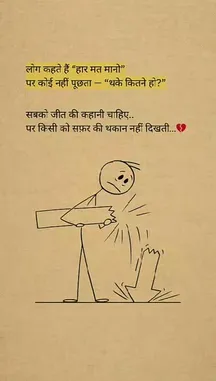 लोग कहते हैं “हार मत मानो”
पर कोई नहीं पूछता – “थके कितने हो?”
सबको जीत की कहानी चाहिए..
पर किसी को सफ़र की थकान नहीं दिखती...💔